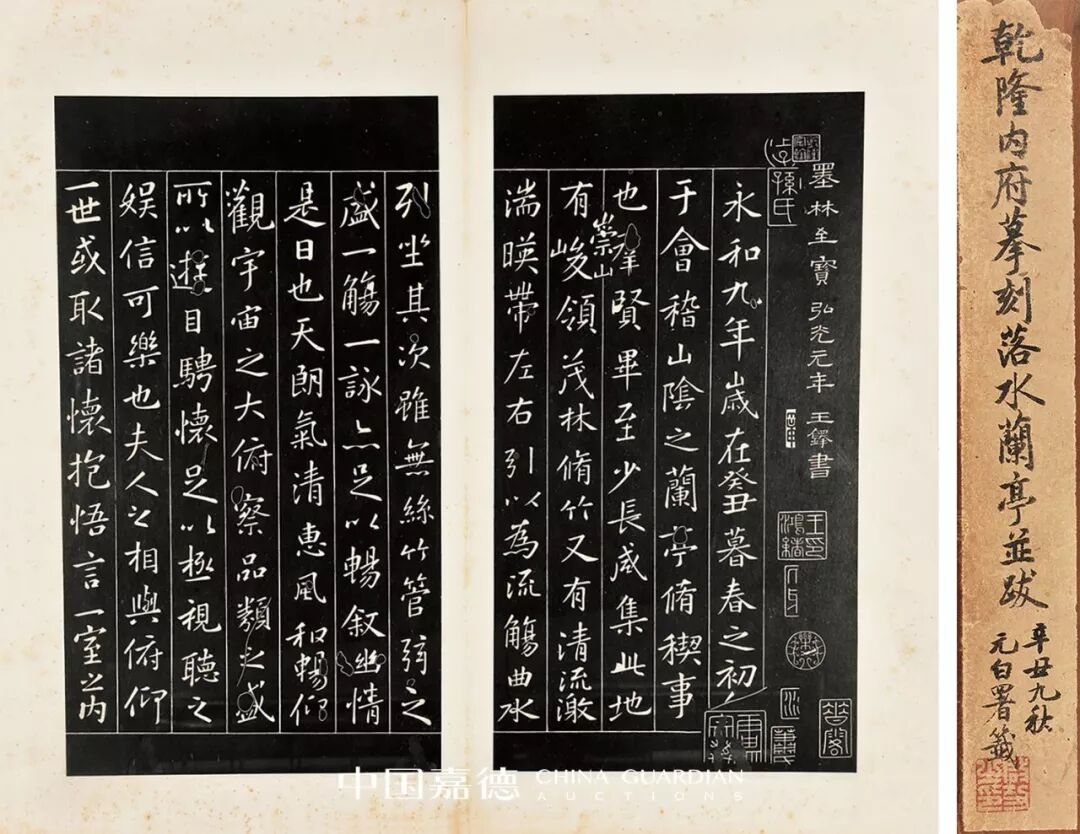 乾隆内府摹刻落水蘭亭並跋
辛丑九秋
元白署籤
墨林至寶 弘光元年 王鐸書
孫氏
王印鴻緒
永和九年歲在癸丑暮春之初
于會稽山陰之蘭亭脩稧事
也群賢畢至少長咸集此地
有崇山峻領茂林脩竹又有清流激
湍暎帶左右引以為流觴曲水
列坐其次雖無絲竹管弦之
盛一觴一詠亦足以暢叙幽情
是日也天朗氣清惠風和暢仰
觀宇宙之大俯察品類之盛
所以遊目騁懷足以極視聽之
娱信可樂也夫人之相與俯仰
一世或取諸懷抱悟言一室之内
中国嘉德 CHINA GUARDIAN
AUCTIONS